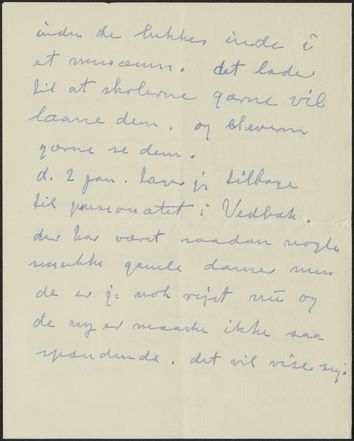 inden de lukkes inde i
et musæum. det lader
til at skolerne gærne vil
laane dem. og eleverne
gærne se dem.
d. 2 jan. tager jeg tilbage
til pensionatet i Vedbæk.
der har været saadan nogle
smukke gamle damer men
de er jo nok rejst nu og
de ny er maaske ikke saa
spændende. det vil vise sig.